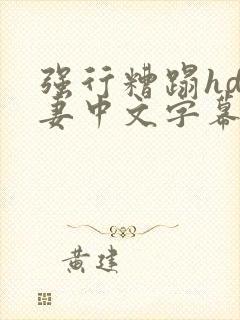 强行糟蹋hd
妻中文字幕
黄建